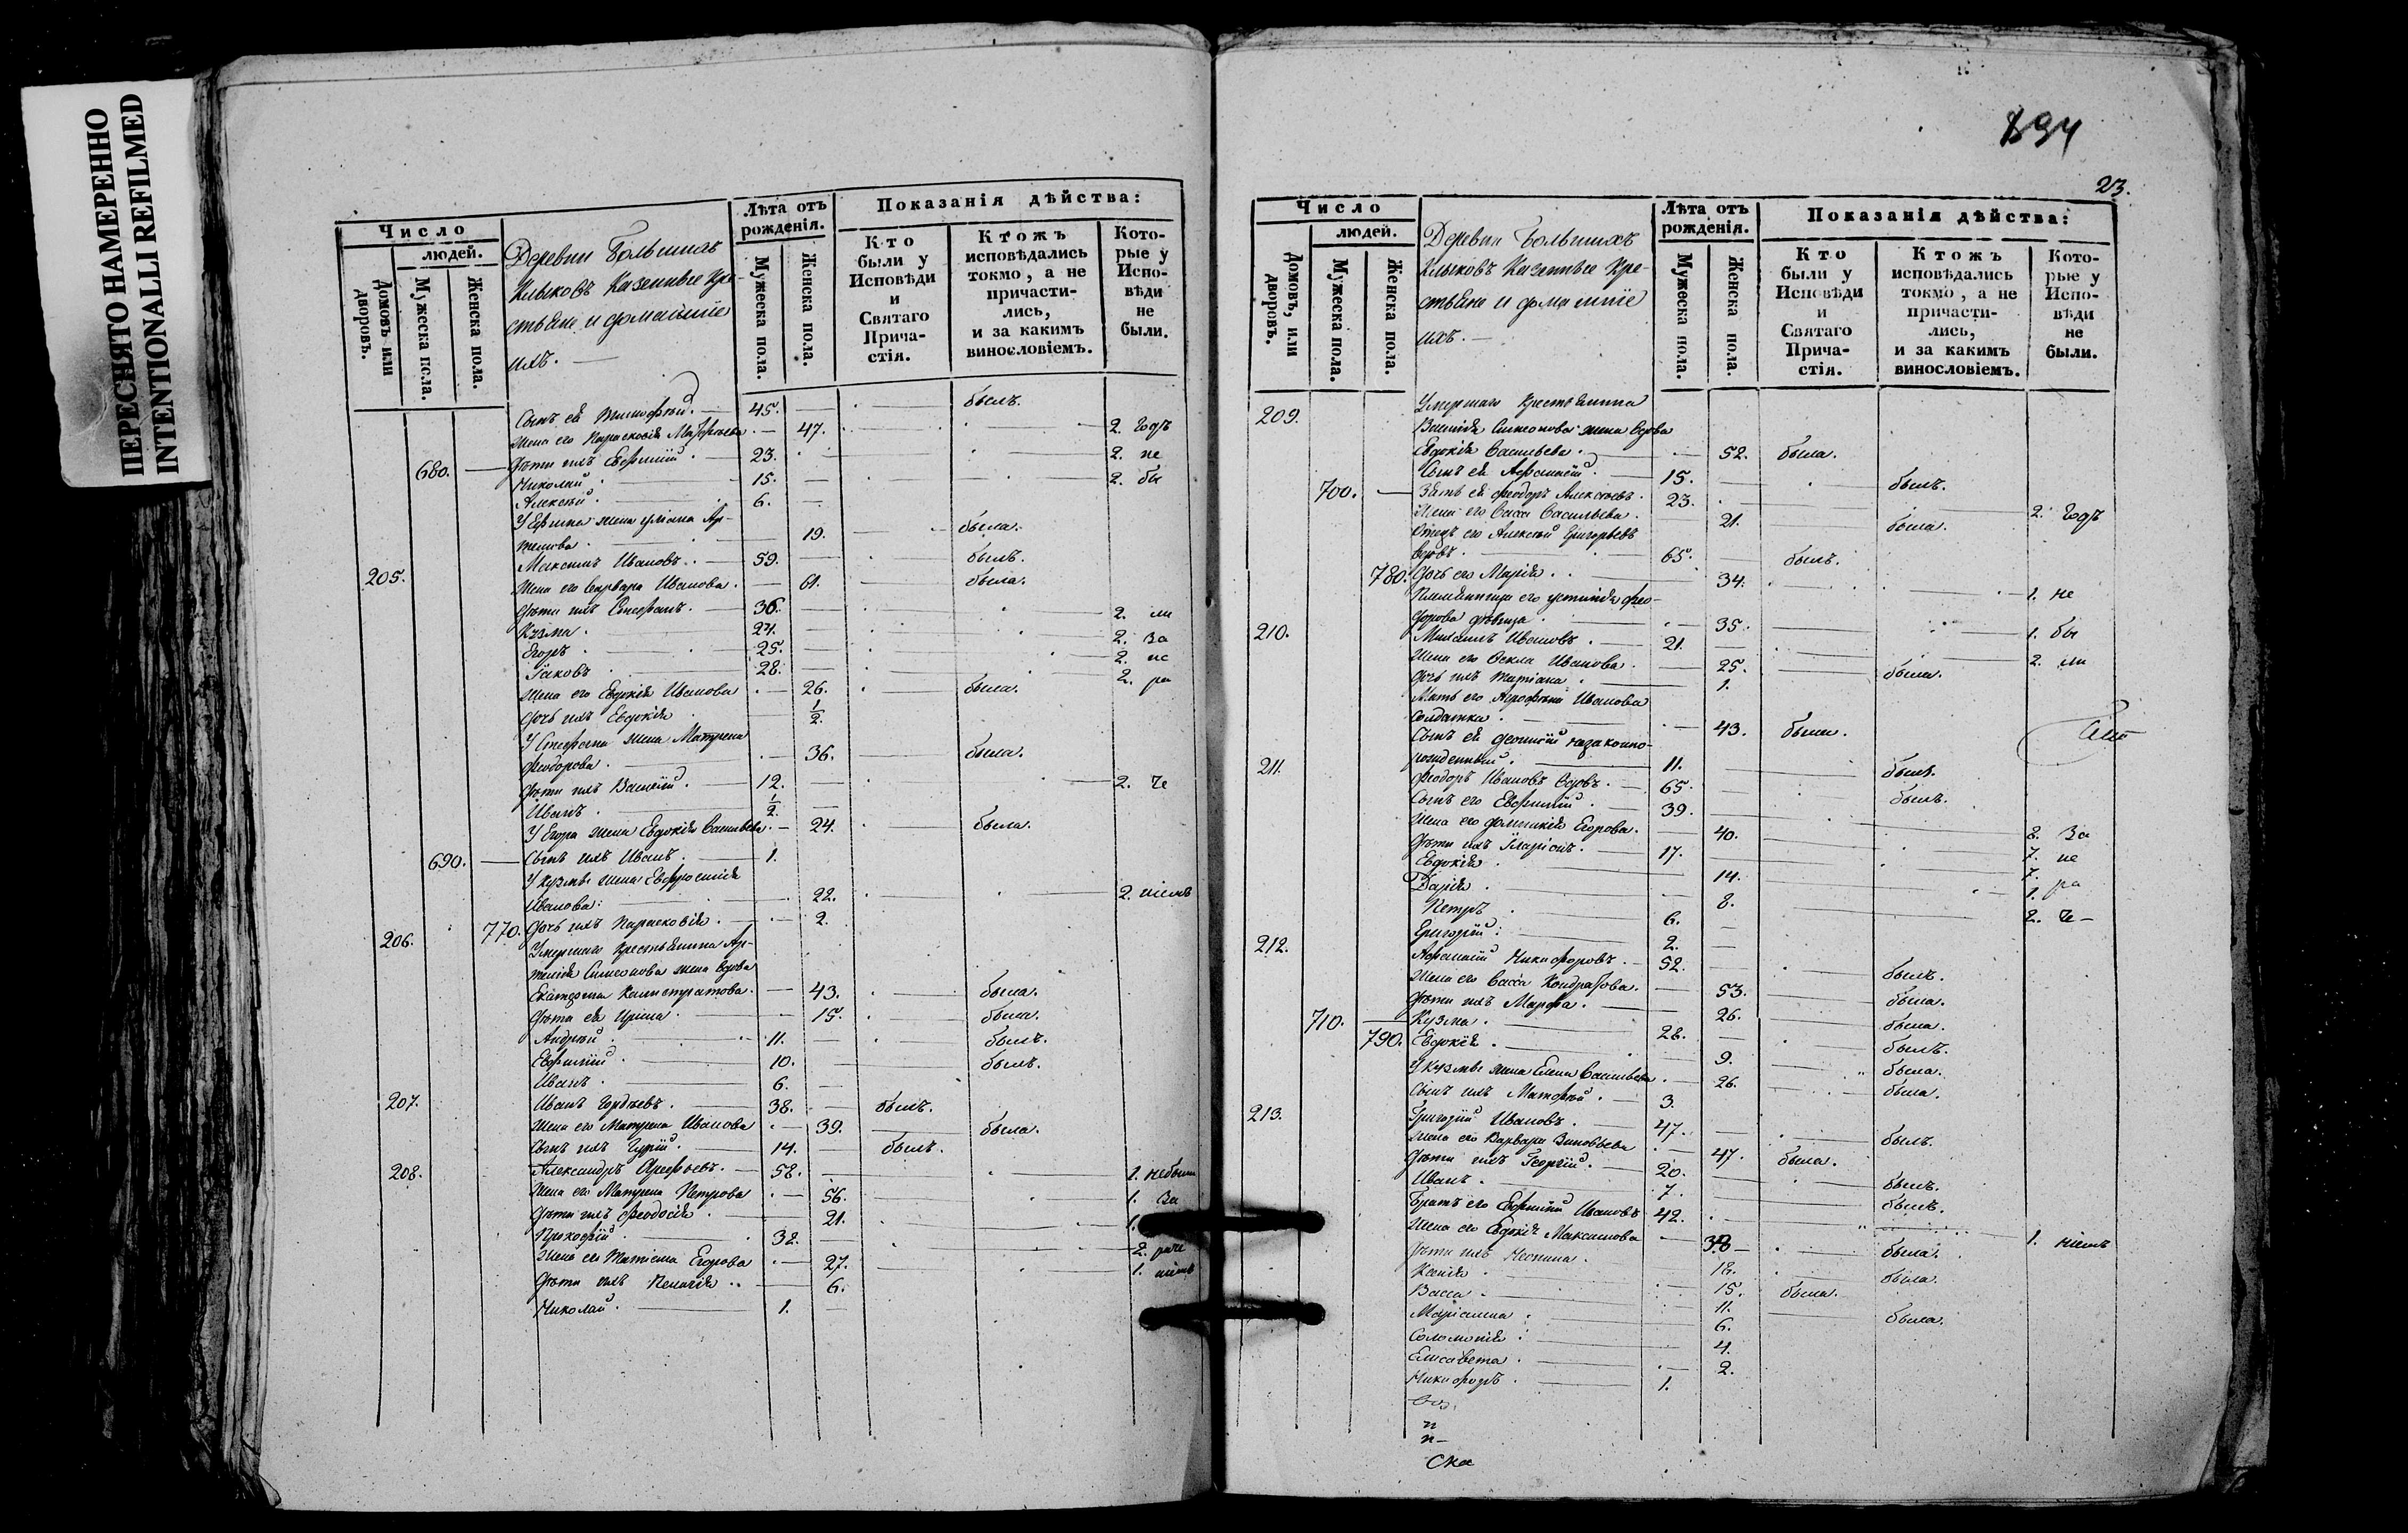 ПЕРЕСНЯТО НАМЕРЕННО
INTENTIONALLI REFILMED
Число
людей.
Домовъ или дворовъ.
Мужеска пола.
Женска пола.
Деревни Большихъ
Клыковъ Казенные Кре-
стьяне и домашніе
ихъ. —
Лѣта отъ рожденія.
Мужеска пола.
Женска пола.
Показанія дѣйства:
Кто были у Исповѣди и Святаго Прича-стія.
Ктожъ исповѣдались токмо, а не причасти-лись, и за какимъ винословіемъ.
Кото-рые у Испо-вѣди не были.
Сынъ ея Тимофей. — 45. — былъ.
Жена его Парасковія — 47. — 2. годъ
680. — Дѣти ихъ Евфимій. — 23. — 2. не
Николай. — 15. — 2. бы
Алексѣй. — 6. —
У Ефима жена Ар-
темова. — 19. — была.
205. Максимъ Ивановъ. — 59. — былъ.
Жена его Варвара Иванова. — 61. — была.
Дѣти ихъ Стефанъ. — 36. — 2. ли
Кузма. — 24. — 2. за
Егоръ. — 25. — 2. не
Іаковъ — 28. — 2. ра
Жена его Евдокія Иванова. — 26. — была.
Дочь ихъ Евдокія — 1/2.
У Стефана жена Матрена
Феодорова. — 36. — была.
Дѣти ихъ Василій. — 12. — 2. че
Иванъ. — 1/2. —
У Егора жена Евдокія Васильева. — 24. — была.
690. — Сынъ ихъ Иванъ. — 1.
У Кузмы жена Евфросинія
Иванова: — 22. — 2. ніемъ
770. Дочь ихъ Парасковія. — 2.
206. Умершаго Крестьянина Ар-
темія Симеонова жена вдова
Екатерина Калистратова. — 43. — была.
Дѣти ея Ирина. — 15. — была.
Андрей. — 11. — былъ.
Евфимій. — 10. — былъ.
Иванъ. — 6. —
207. Иванъ Гордѣевъ. — 38. — былъ.
Жена его Матрена Иванова — 39. — была.
Сынъ ихъ Гурій. — 14. — былъ.
208. Александръ Арефьевъ. — 58. — 1. небыли
Жена его Матрена Петрова — 56. — 1. За
Дѣти ихъ Феодосія. — 21. — 1.
Прокофій. — 32. — 2. раче
Жена его Татіана Егорова — 27. — 1. ніемъ
Дѣти ихъ Пелагія. — 6.
Николай. — 1. —
894
23.
Число
людей.
Домовъ, или дворовъ.
Мужеска пола.
Женска пола.
Деревни Большихъ
Клыковъ Казенные Кре-
стьяне и домашніе
ихъ. —
Лѣта отъ рожденія.
Мужеска пола.
Женска пола.
Показанія дѣйства:
Кто были у Исповѣди и Святаго Прича-стія.
Ктожъ исповѣдались токмо, а не причасти-лись, и за какимъ винословіемъ.
Кото-рые у Испо-вѣди не были.
209. Умершаго Крестьянина
Василія Симеонова жена вдова
Евдокія Васильева. — 52. была.
Сынъ ея Афанасій. — 15. — былъ.
700. — Зять ея Феодоръ Алексѣевъ. 23. — 2. годъ
Жена его Васса Васильева. — 21. — была.
Отецъ его Алексѣй Григорьевъ
вдовъ. — 65. — былъ.
780. Дочь его Марія. — 34. — 1. не
Племянница его Устинія Фео-
дорова дѣвица. — 35. — 1. бы
210. Михаилъ Ивановъ. — 21. — 2. ли
Жена его Фекла Иванова. — 25. — была.
Дочь ихъ Татіана. — 1.
Мать его Иванова
Солдатка. — 43. была.
Сынъ ея незаконно-
рожденный. — 11. — былъ.
211. Феодоръ Ивановъ вдовъ. — 65. — былъ.
Сынъ его Евфимій. — 39. — 2. За
Жена его Домникія Егорова. — 40. — 7. не
Дѣти ихъ Иларіонъ. — 17. — 7.
Евдокія. — 14. — 1. ра
Дарія. — 8. — 2. че-
Петръ. — 6. —
Григорій: — 2. —
212. Афанасій Никифоровъ. — 52. — былъ.
Жена его Васса Кондратова. — 53. — была.
Дѣти ихъ Марфа. — 26. — была.
710. — Кузма. — 28. — былъ.
790. Евдокія. — 9. — была.
У Кузмы жена Елена Васильева. — 26. — была.
Сынъ ихъ Матфей. — 3.
213. Григорій Ивановъ. — 47. — былъ.
Жена его Варвара Зиновьева. — 47. была.
Дѣти ихъ Георгій. — 20. — былъ.
Иванъ. — 7. — былъ.
Братъ его Евфимій Ивановъ 42. — 1. ніемъ
Жена его Евдокія Максимова — 38 — была.
Дѣти ихъ — 18. — была.
Ксенія. — 15. была.
Васса. — 11. — была.
Маріамна. — 6.
Соломонія. — 4.
Елисавета. — 2.
Никифоръ. — 1.
Ска